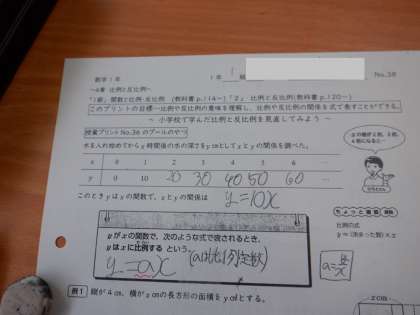 数学1年 1年 No.38
~4章 比例と反比例~
「1節」関数と比例・反比例 (教科書p.114~)「2」 比例と反比例(教科書p.120~)
このプリントの目標…比例や反比例の意味を理解し、比例や反比例の関係を式で表すことができる。
~ 小学校で学んだ比例と反比例を見直してみよう ~
授業プリントNo.36のプールのやつ
水を入れ始めてからx時間後の水の深さをycmとしてxとyの関係を調べた。
x 0 1 2 3 4 5 6 …
y 0 10 20 30 40 50 60 …
このときyはxの関数で、xとyの関係は y=10x
ちょっと復習
比例の式
y=(決まった数)×x
yがxの関数で、次のような式で表されるとき、
yはxに比例する という。
y=ax (aは比例定数)
a=y/x
例1 縦が4cm、横がxcmの長方形の面積をycm²とする。
xcm